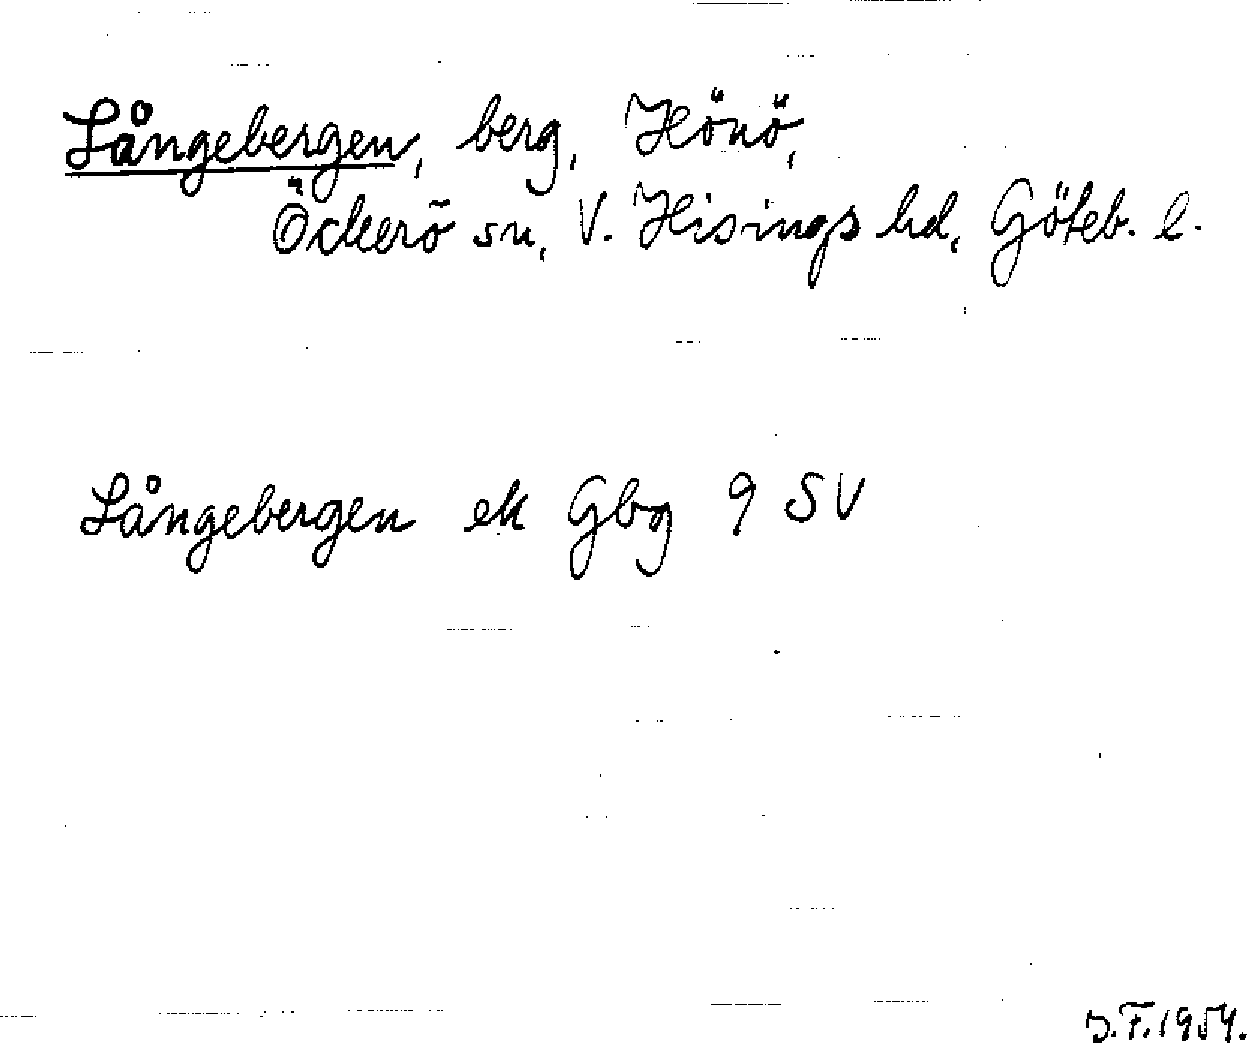 Långebergen, berg, Hönö,
Öckerö sn, V. Hisings hd, Göteb. l.
Långebergen ek Gbg 9 SV
J.F. 1954.